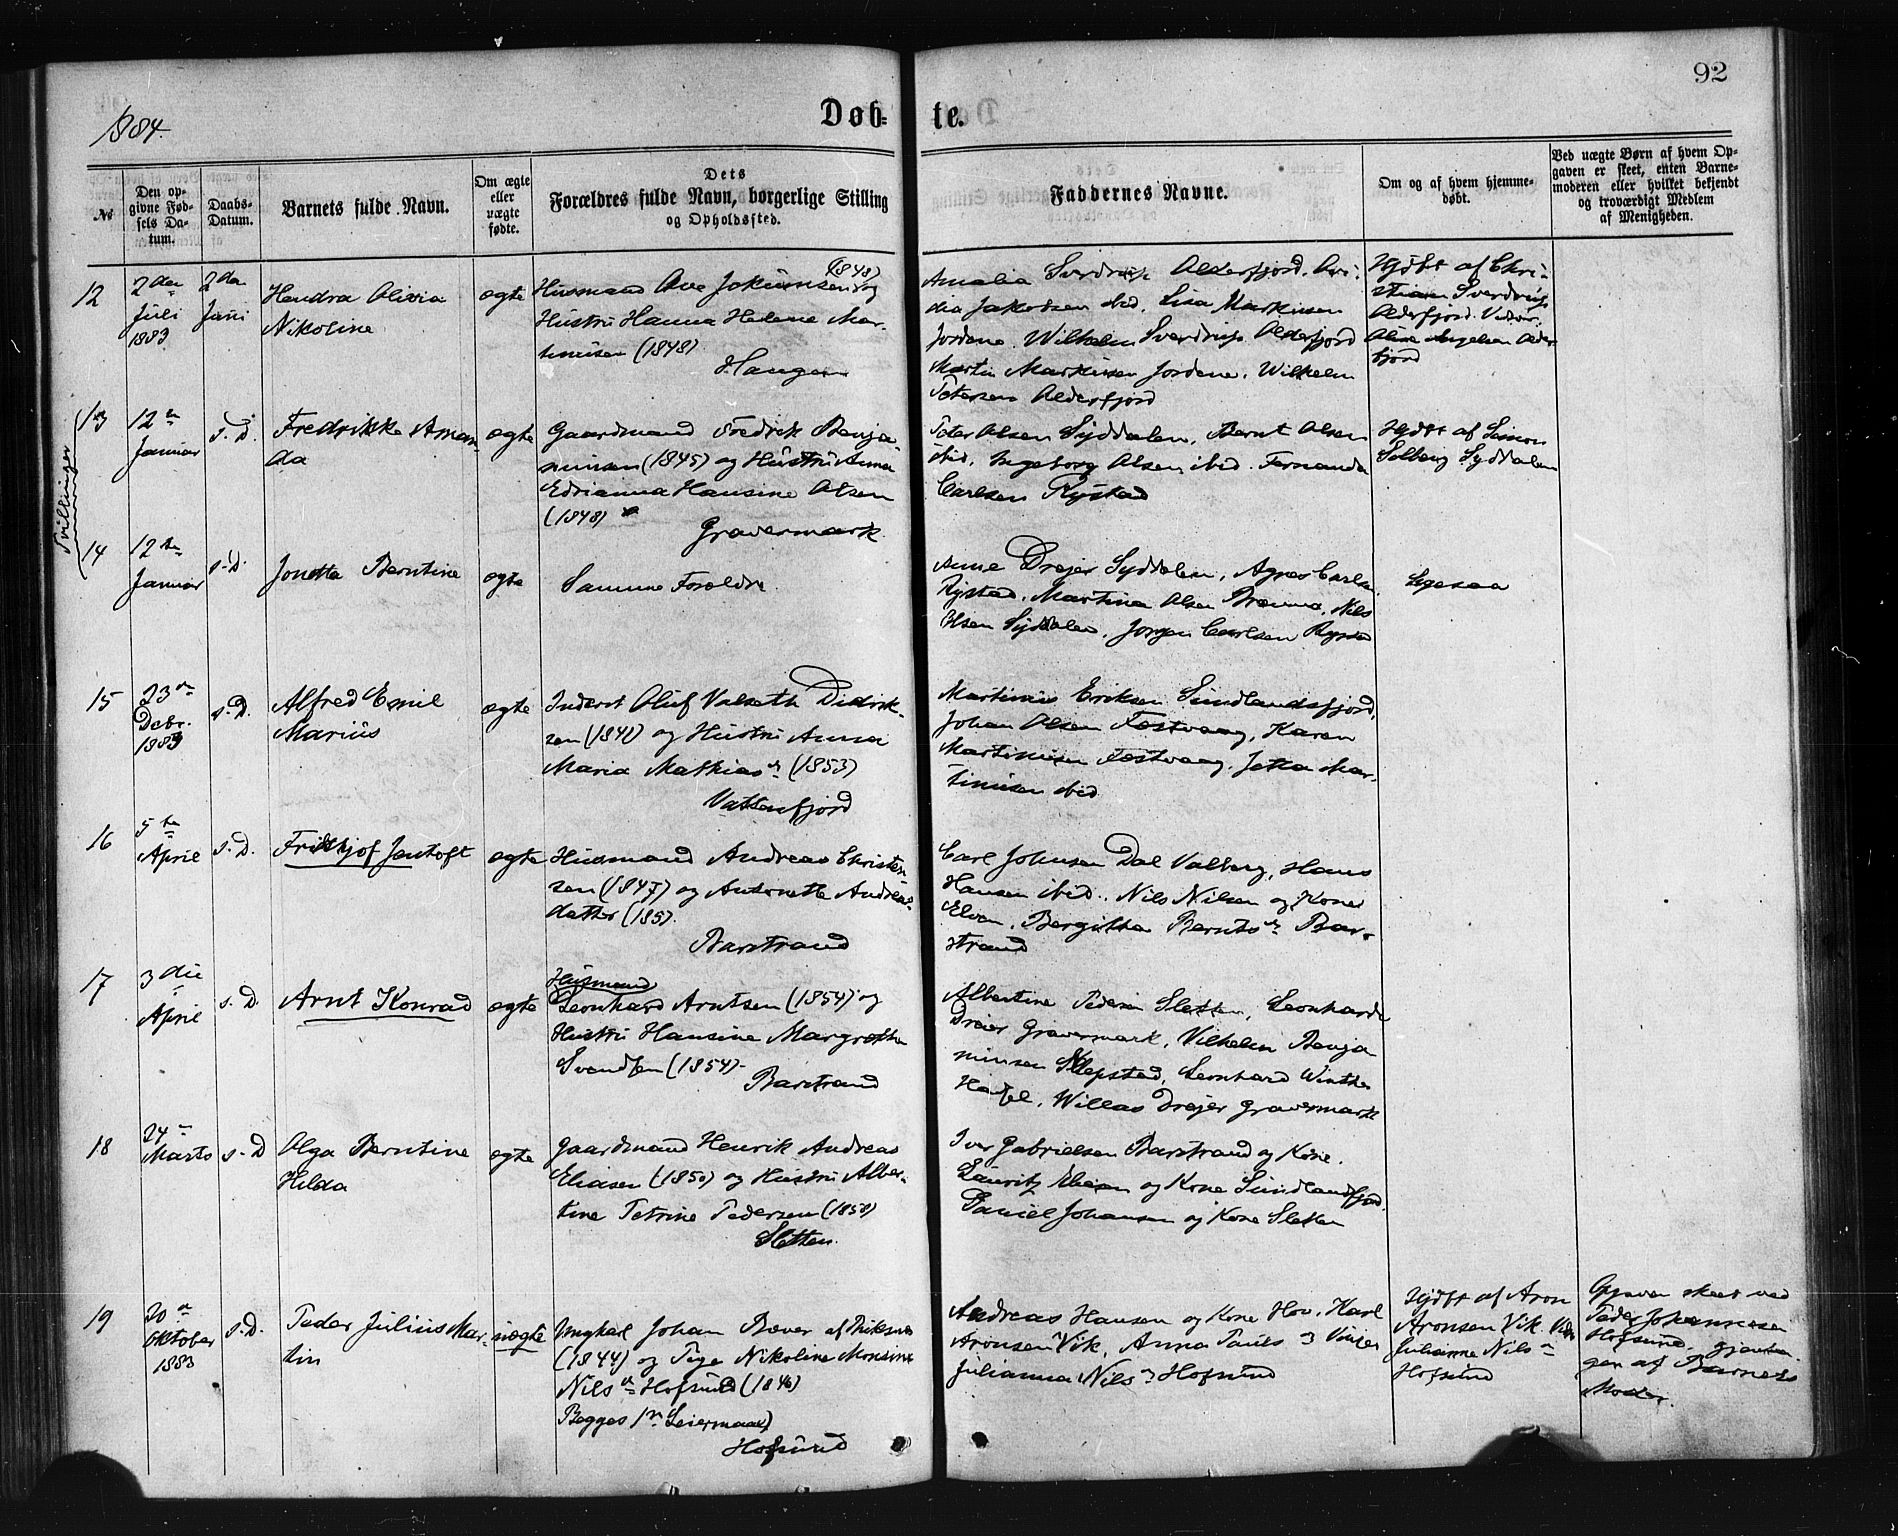 92
1884.
Døb-
te.
№
Den op-
givne Fød-
sels Da-
tum.
Daabs-
Datum.
Barnets fulde Navn.
Om ægte
eller
uægte
fødte.
Dets
Forældres fulde Navn, borgerlige Stilling
og Opholdssted.
Faddernes Navne.
Om og af hvem hjemme-
døbt.
Ved uægte Børn af hvem Op-
gaven er skeet, enten Barne-
moderen eller hvilket bekjendt
og troværdigt Medlem
af Menigheden.
12
2den
Juli
1883
2den
Juni
Hendra Olivia
Nikoline
ægte
(1848)
Husmand Ove Jakobsen og
Hustru Hanna Helene Mar-
tinusen (1848)
Haugen
Amalia Sverdrup Alderfjord, Ovi-
dia Jakobsen ibid, Lisa Martinusen
Jordene, Wilhelm Sverdrup Alderfjord
Martin Martinusen Jordene, Wilhelm
Petersen Alderfjord
Hjdbt af Chri-
stian Sverdrup
Alderfjord. Vidner
Angelsen Alder-
fjord
Tvillinger
13
12te
Januar
s. D.
Fredrikke Aman-
da
ægte
Gaardmand Fredrik Benja-
minsen (1845) og Hustru Anna
Edrianna Hansine Olsen
(1848)
Gravermark
Peter Olsen Syddalen, Bernt Olsen
ibid, Ingeborg Olsen ibid. Fernanda
Carlsen Rystad
Hjdbt af Simon
Solberg Syddalen
14
12te
Januar
s. D.
Jonette Berntine
ægte
Samme Forældre
Anne Drejer Syddalen, Agnes Carlsen
Rystad, Martina Olsen Brenna, Nils
Olsen Syddalen, Jørgen Carlsen Rystad
Ligesaa
15
23de
Debr.
1883
s. D.
Alfred Emil
Marius
ægte
Inderst Oluf Valseth Didrik-
sen (1841) og Hustru Anna
Maria Mathiasdr (1853)
Vatsenfjord
Martinus Eriksen Sundlandsfjord,
Johan Olsen Festvaag, Karen
Martinusen Festvaag, Jetta Mar-
tinusen ibid
16
5te
April
s. D.
Fridthjof Jentoft
ægte
Husmand Andreas Christen-
sen (1847) og Antonette Andreas-
datter (185).
Barstrand
Carl Johnsen Dal Valberg, Hans
Hansen ibid. Nils Nilsen og Kone
Elven, Bergitte Berntsdr Bar-
strand
17
3die
April
s. D.
Arnt Konrad
ægte
Husmand
Leonhard Arntsen (1854) og
Hustru Hansine Margrethe
Svendsen (1854)
Barstrand
Albertine Pedersen Sletten, Leonharda
Drejer Gravermark, Vilhelm Benja-
minsen Klepstad, Leonhard Winther
Willas Drejer Gravermark
18
24de
Marts
s. D
Olga Berntine
Hilda
ægte
Gaardmand Henrik Andreas
Eliasen (1850) og Hustru Alber-
tine Petrine Pedersen (1858)
Sletten.
Iver Gabrielsen Barstrand og Kone.
Lauritz Eliasen og Kone Sundlandsfjord.
Daniel Johansen og Kone Sletten
19
20de
Oktober
1883
s. D.
Peder Julius Mar-
tin
uægte
Ungkarl Johan Bæver af
(1844) og Pige Nikoline Monsine
Nilsdr Hofsund (1846)
Begges 1ste Leiermaal)
Hofsund
Andreas Hansen og Kone Hov, Karl
Aronsen Vik, Anna Paulsdr
Julianna Nilsdr Hofsund
Hjdbt af Aron
Aronsen Vik. Vidne
Julianne Nilsdr
Hofsund
Opgaven skeet ved
Peder Johannesen
Hofsund,
af Barnets
Moder.